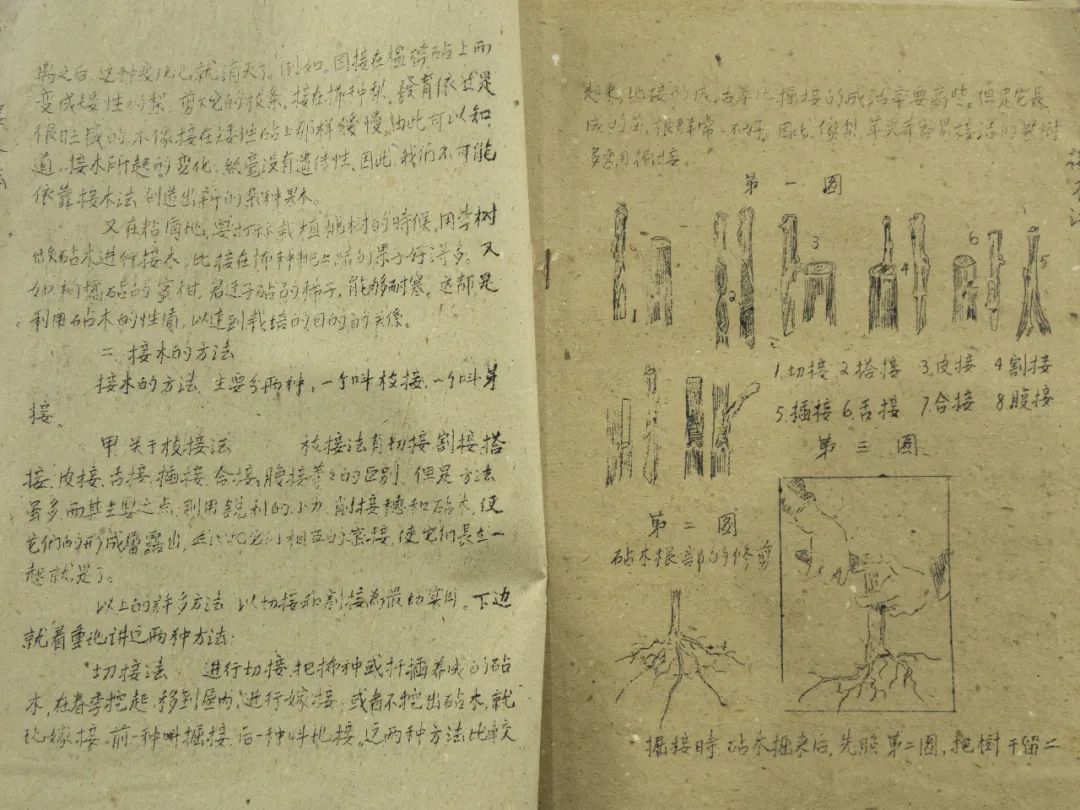 之后,这种变化也就消灭了。例如,因接在榅桲砧上而
变成矮性的梨,剪下它的枝条,接在怖种砧,發育依然是
很旺盛的,不像接在矮性砧上那样缓慢。由此可以知
道,接木所起的变化,絲毫没有遗传性。因此,我们不可能
依靠接木法,创造出新的杂种果木。
又在粘质地,要打标栽植桃树的時候,用李树
做砧木进行接木,比接在怖种桃上結的果子好得多。又
如枸橘砧的蜜柑,君迁子砧的柿子,能够耐寒。这都是
利用砧木的性質,以达到栽培的目的的关係。
二 接木的方法
接木的方法,主要分两种。一个叫枝接,一个叫芽
接。
甲,关于枝接法 枝接法有切接、割接、搭
接、皮接、舌接、插接、合接、腹接等々的区别。但是方法
虽多,而其主要之点,则用銳利的小刀,削接穗和砧木,使
它们的形成層露出,并把它们相互的密接,使它们長在一
起就是了。
以上的許多方法,以切接和割接為最切实用。下边
就着重地讲这两种方法:
切接法 进行切接,把怖种或扦插养成的砧
木,在春季挖起,移到屋内,进行嫁接;或者不挖出砧木,就
地嫁接。前一种叫掘接,后一种叫地接。这两种方法比較
起来,地接的成活率比掘接的成活率要高些。但是它長
成的苗,根群常不好。因此,像梨、苹果等容易接活的果树
多采用掘接。
第一圖
1 2 3 4 6 5
1.切接 2.搭接 3.皮接 4.割接
5.插接 6.舌接 7.合接 8.腹接
第三圖
第二圖
砧木根部的修剪
掘接時,砧木掘来后,先照第二圖,把樹干留二